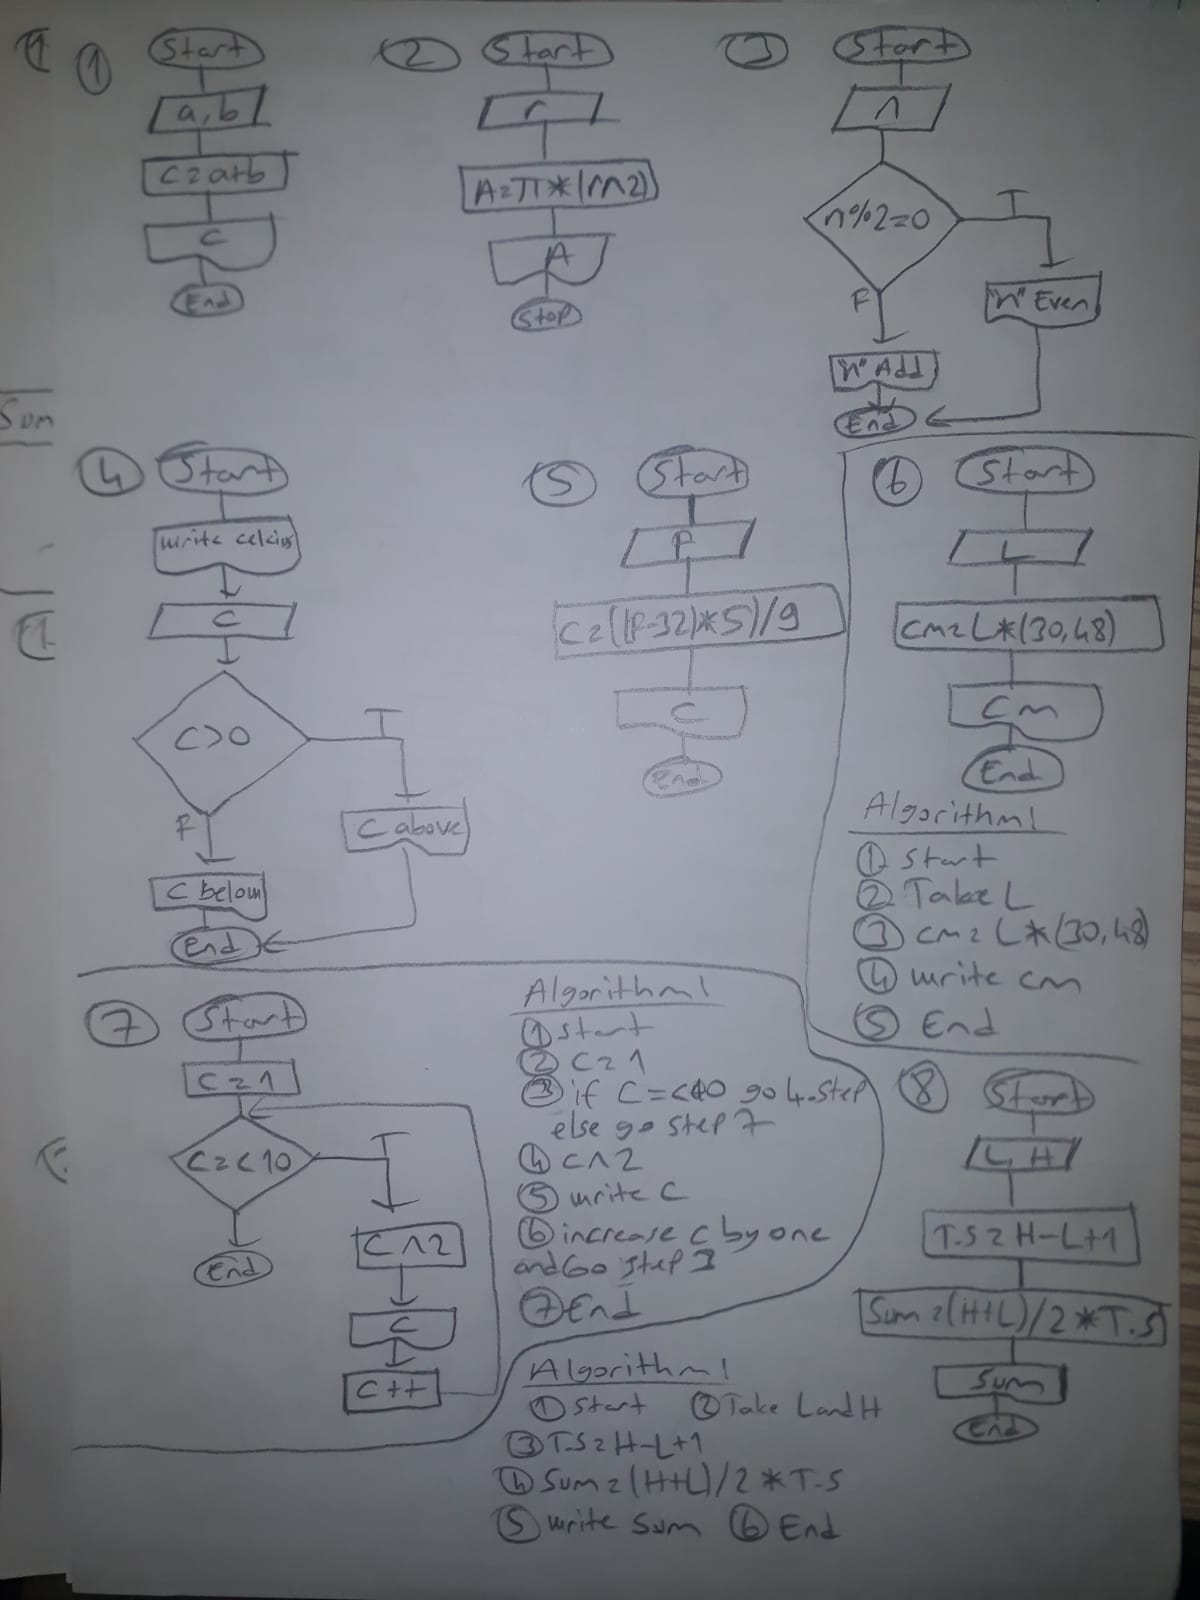 ① Start
a, b
C = a+b
C
End
② Start
r
A=π*(r^2)
A
Stop
③ Start
n
n%2=0
T
F
"n" Even
"n" Add
End
Sum
④ Start
write celcius
C
C>0
T
F
C above
C below
End
⑤ Start
F
C=((F-32)*5)/9
C
End
⑥ Start
L
cm=L*(30,48)
Cm
End
Algorithm!
① Start
② Take L
③ cm=L*(30,48)
④ write cm
⑤ End
⑦ Start
C=1
C=<10
T
End
C^2
C
C++
Algorithm!
① Start
② C=1
③ if C=<10 go 4.step
else go step 7
④ C^2
⑤ write C
⑥ increase c by one
and Go step 3
⑦ End
⑧ Start
L, H
T.S=H-L+1
Sum=(H+L)/2*T.S
Sum
End
Algorithm!
① Start ② Take L and H
③ T.S=H-L+1
④ Sum=(H+L)/2*T.S
⑤ write Sum ⑥ End